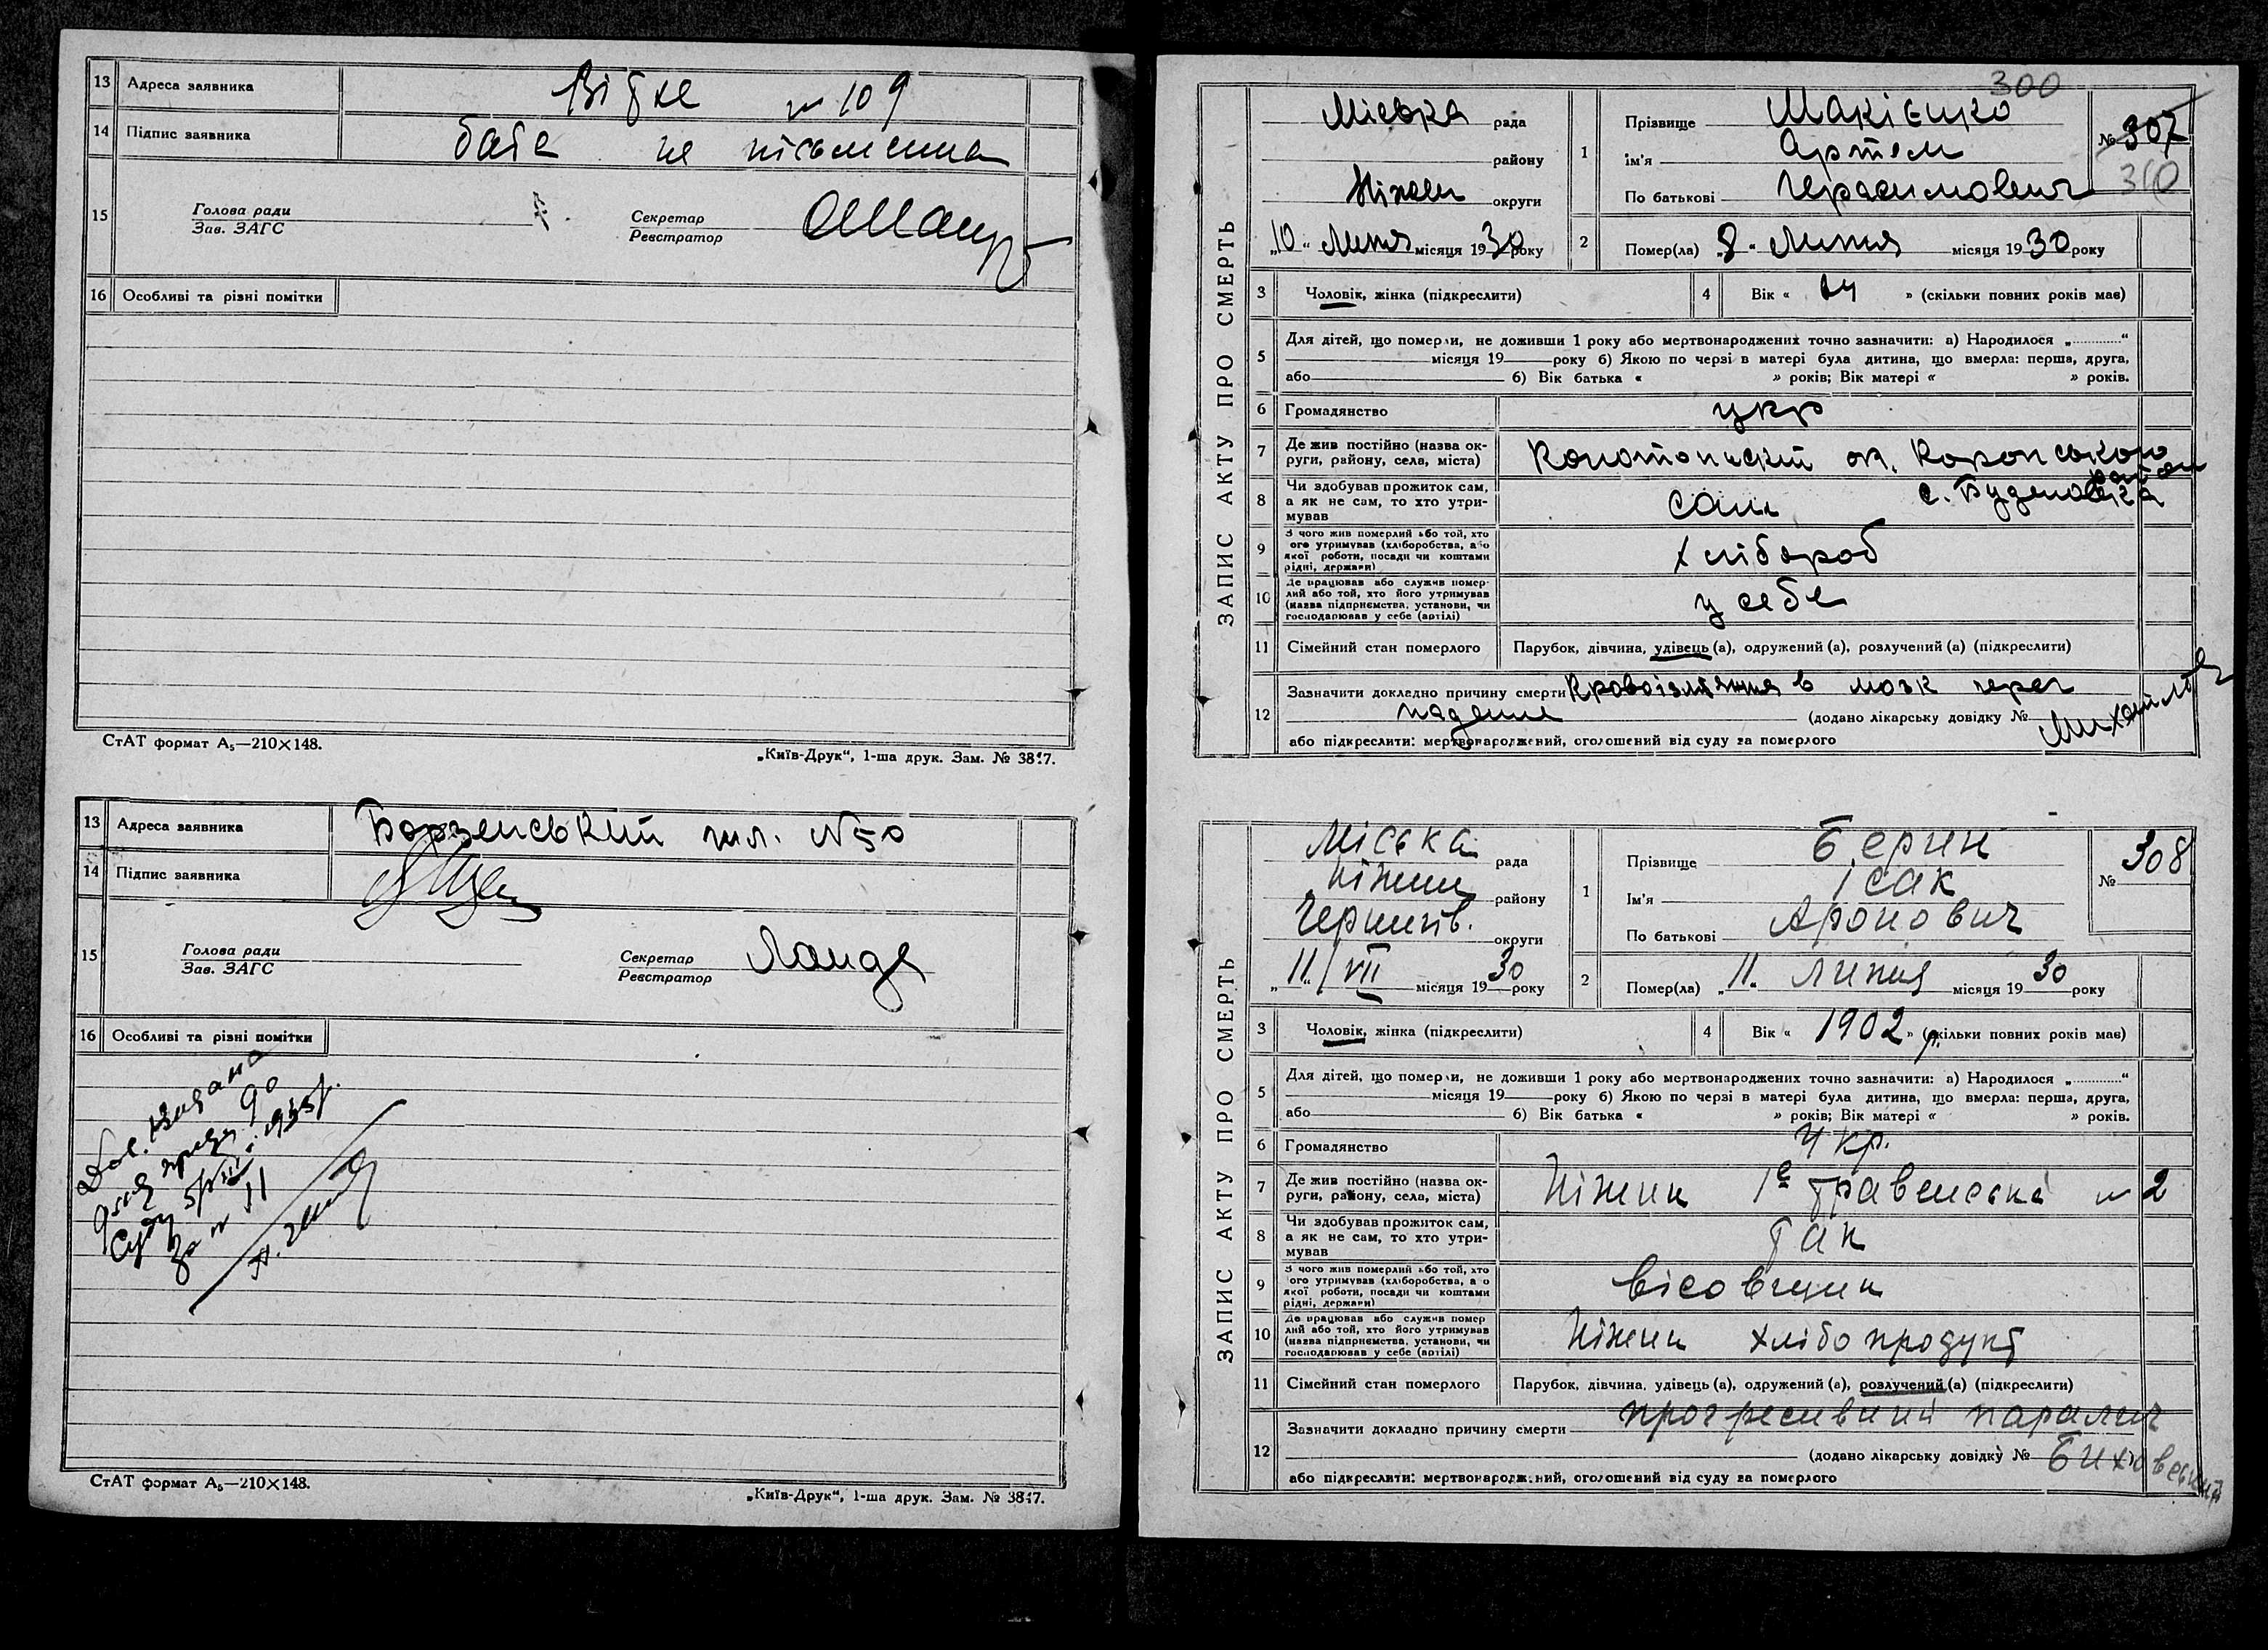 13 Адреса заявника Вібке № 109
14 Підпис заявника баба не письменна
15 Голова ради
Зав. ЗАГС
Секретар
Реєстратор
16 Особливі та різні помітки
СтАТ формат А₅—210×148.
„Київ-Друк“, 1-ша друк. Зам. № 3847.
13 Адреса заявника Борзенський шл. №50
14 Підпис заявника
15 Голова ради
Зав. ЗАГС
Секретар
Реєстратор Ланда
16 Особливі та різні помітки
Дов. видана
за № 11
СтАТ формат А₅—210×148.
„Київ-Друк“, 1-ша друк. Зам. № 3847.
300
ЗАПИС АКТУ ПРО СМЕРТЬ
Міська рада
району
Ніжен округи
„10“ Липня місяця 1930 року
1 Прізвище Макієнко
Ім'я Артем
По батькові Герасимович
№ 307
310
2 Помер(ла) „8“ Липня місяця 1930 року
3 Чоловік, жінка (підкреслити)
4 Вік « 64 » (скільки повних років має)
5 Для дітей, що померли, не доживши 1 року або мертвонароджених точно зазначити: а) Народилося „............“
місяця 19 року б) Якою по черзі в матері була дитина, що вмерла: перша, друга,
або б) Вік батька « » років; Вік матері « » років.
6 Громадянство укр
7 Де жив постійно (назва округи, району, села, міста) Конотопський ок. Коропського
район
с. Буденовка
8 Чи здобував прожиток сам, а як не сам, то хто утримував сам
9 З чого жив померлий або той, хто його утримував (хліборобства, або якої роботи, посади чи коштами рідні, держави) хлібороб
10 Де працював або служив померлий або той, хто його утримував (назва підприємства, установи, чи господарював у себе (артілі) у себе
11 Сімейний стан померлого Парубок, дівчина, удівець (а), одружений (а), розлучений (а) (підкреслити)
12 Зазначити докладно причину смерти Кровоізліяння в мозк через
падение (додано лікарську довідку №
або підкреслити: мертвонароджений, оголошений від суду за померлого
ЗАПИС АКТУ ПРО СМЕРТЬ
Міська рада
Ніжин району
Чернигів. округи
„11“ VII місяця 1930 року
1 Прізвище Берин
Ім'я Ісак
По батькові Аронович
№ 308
2 Помер(ла) „11“ липня місяця 1930 року
3 Чоловік, жінка (підкреслити)
4 Вік « 1902 р. » (скільки повних років має)
5 Для дітей, що померли, не доживши 1 року або мертвонароджених точно зазначити: а) Народилося „............“
місяця 19 року б) Якою по черзі в матері була дитина, що вмерла: перша, друга,
або б) Вік батька « » років; Вік матері « » років.
6 Громадянство Укр.
7 Де жив постійно (назва округи, району, села, міста) Ніжин 1е Гравенська № 2
8 Чи здобував прожиток сам, а як не сам, то хто утримував так
9 З чого жив померлий або той, хто його утримував (хліборобства, або якої роботи, посади чи коштами рідні, держави) вісовщик
10 Де працював або служив померлий або той, хто його утримував (назва підприємства, установи, чи господарював у себе (артілі) Ніжин хлібопродукт
11 Сімейний стан померлого Парубок, дівчина, удівець (а), одружений (а), розлучений (а) (підкреслити)
12 Зазначити докладно причину смерти прогресивний параліч
(додано лікарську довідку № Биховський
або підкреслити: мертвонароджений, оголошений від суду за померлого